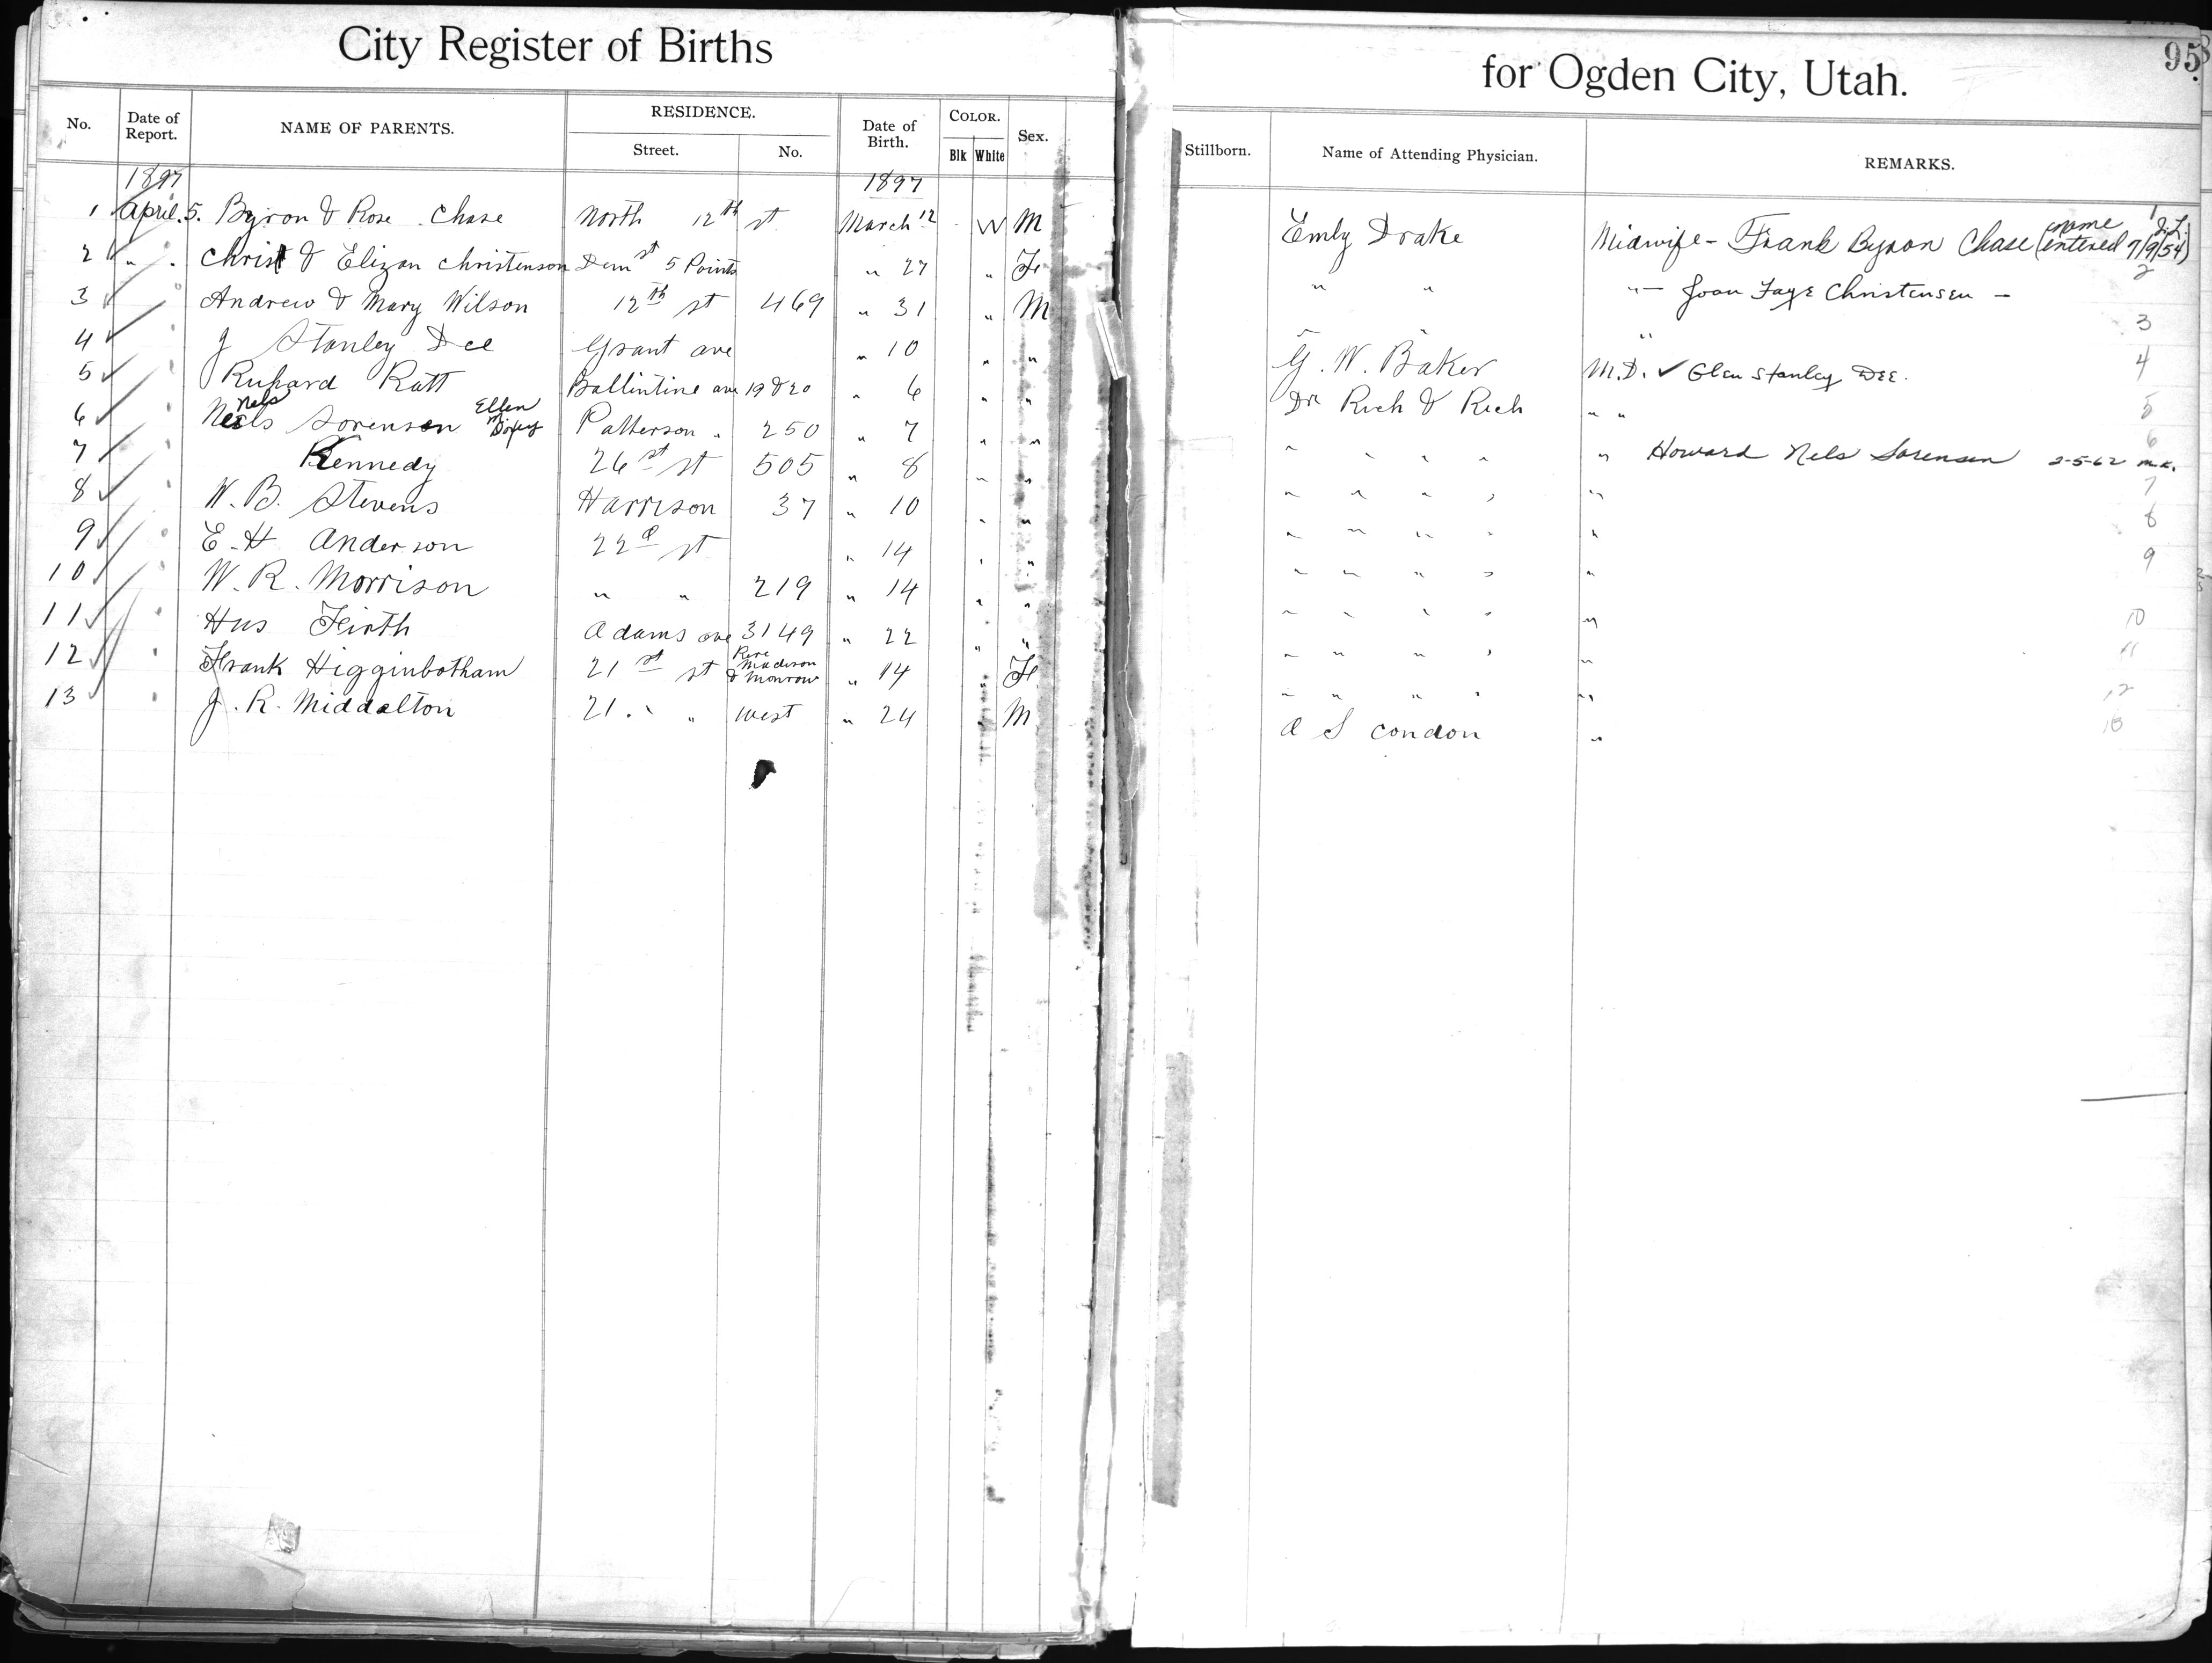 City Register of Births for Ogden City, Utah. 95
No. Date of Report. NAME OF PARENTS. RESIDENCE. Street. No. Date of Birth. COLOR. Blk White Sex. Stillborn. Name of Attending Physician. REMARKS.
1897 1897
1 April. 5. Byron & Rose Chase North 12th st March 12 W M Emly Drake Midwife - Frank Byron Chase (name entered 7/9/54) 1
2 " " Christ & Elizan Christenson 5 Points " 27 " F " " " - Joan Faye Christensen - 2
3 Andrew & Mary Wilson 12th st 469 " 31 " M " " " 3
4 J Stanley Dee Grant ave " 10 " " G. W. Baker M.D. ✓ Glen Stanley Dee. 4
5 Ruhard Ratt Ballintine ave 19 & 20 " 6 " " Dr Rich & Rich " " 5
6 Nels Sorenson Ellen Patterson " 250 " 7 " " " " " " " Howard Nels Sorensen 2-5-62 m.k. 6
7 Kennedy 26st st 505 " 8 " " " " " " " 7
8 W. B. Stevens Harrison 37 " 10 " " " " " " " 8
9 E. H Anderson 22d st " 14 " " " " " " " 9
10 W. R. Morrison " " 219 " 14 " " " " " " " 10
11 Hus Firth Adams ave 3149 " 22 " " " " " " " 11
12 Frank Higginbotham 21st st Madison & Monrow " 14 " F " " " " " 12
13 J. R. Middalton 21. " " west " 24 " M A S Condon " 13